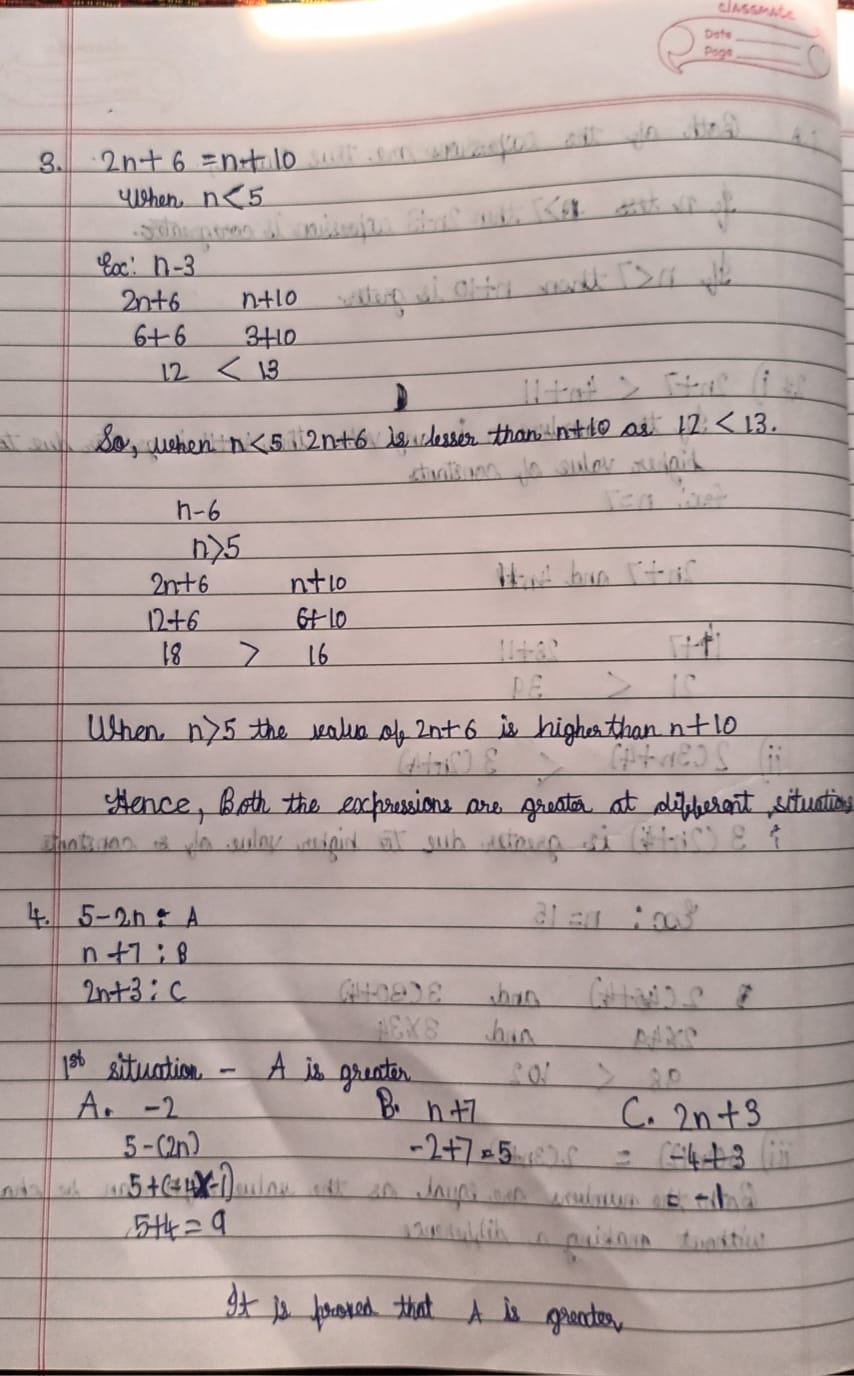 classmate
Date
Page
3. 2n+6 = n+10
When n<5
Ex: n-3
2n+6 n+10
6+6 3+10
12 < 13
So, when n<5, 2n+6 is lesser than n+10 as 12 < 13.
n-6
n>5
2n+6 n+10
12+6 6+10
18 > 16
When n>5 the value of 2n+6 is higher than n+10
Hence, Both the expressions are greater at different situations
4. 5-2n : A
n+7 : B
2n+3 : C
1st situation - A is greater
A. -2 B. n+7 C. 2n+3
5-(2n) -2+7=5 = -4+3
5+(-4x-1) = -1
5+4=9
It is proved that A is greater